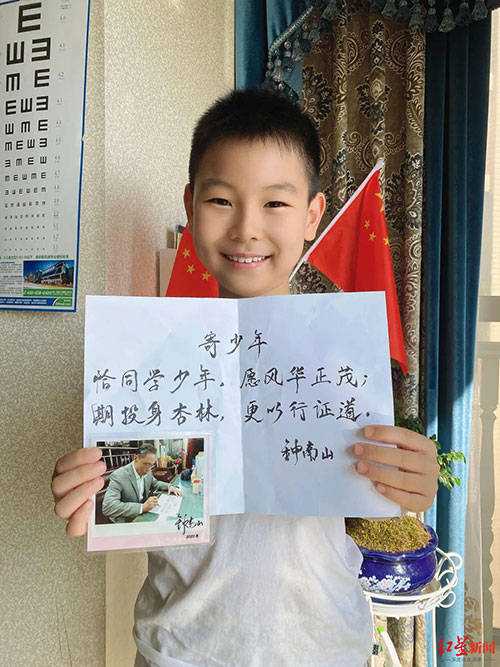 寄少年
恰同学少年，愿风华正茂；
期投身杏林，更以行证道。
钟南山
钟南山
红星新闻